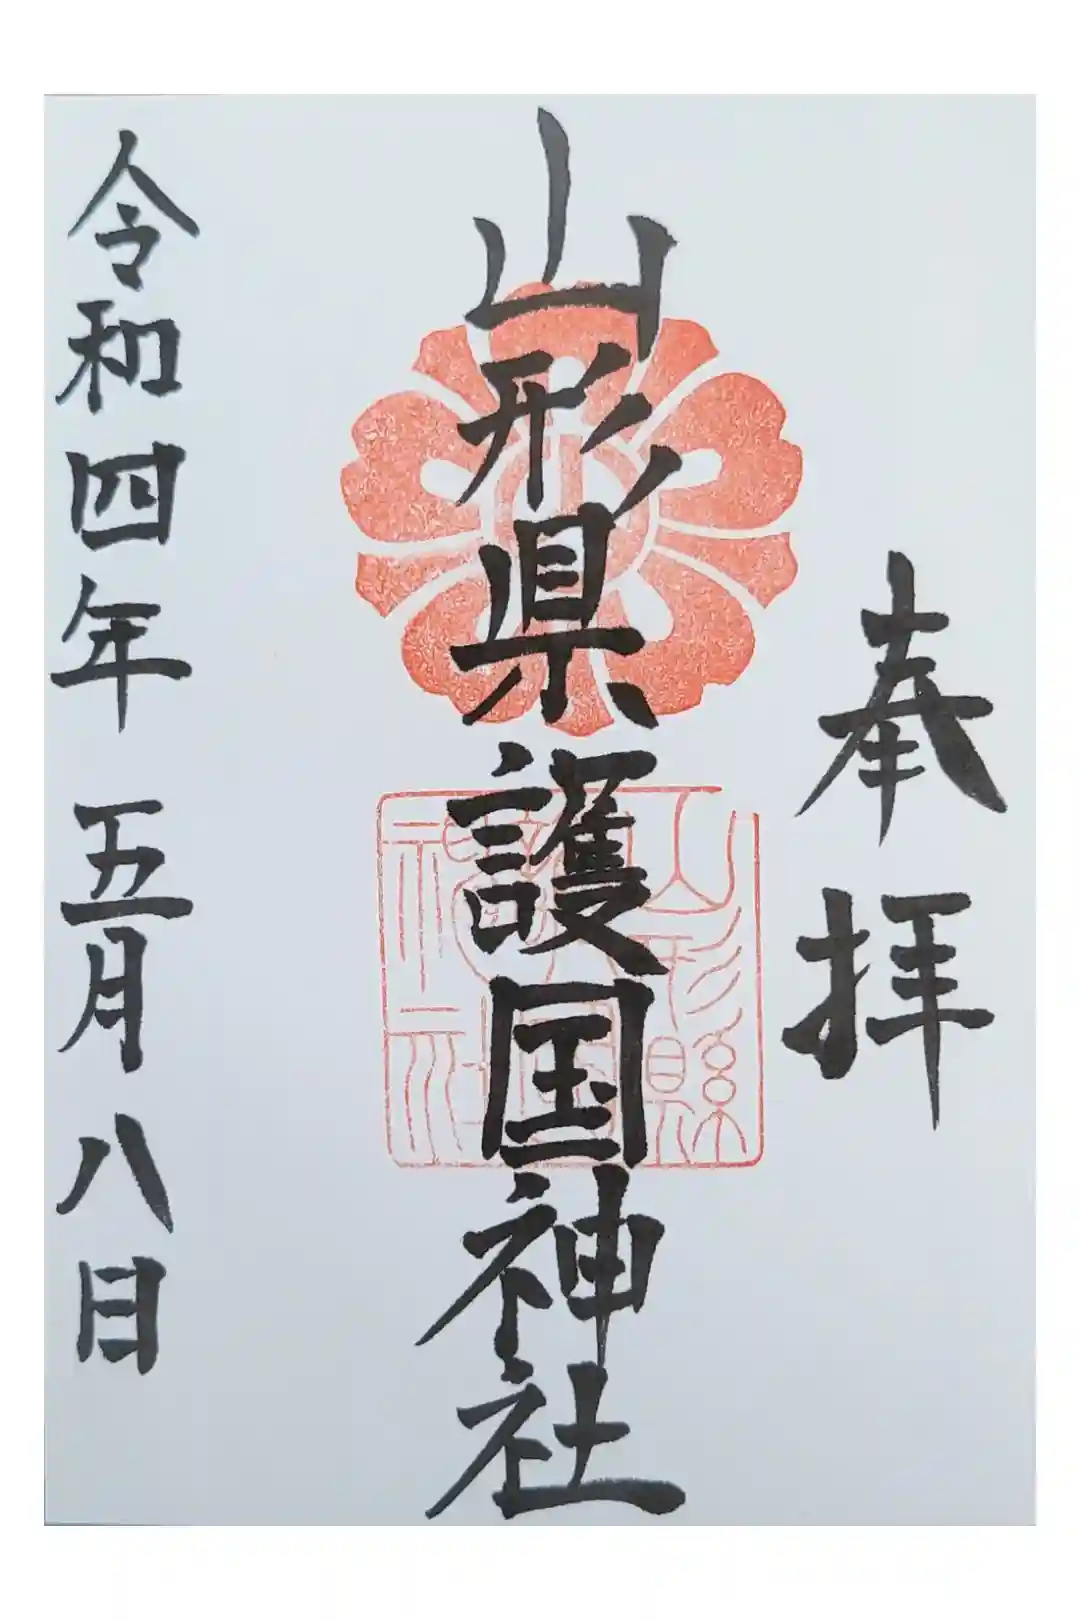 奉拝
山形県護国神社
山形縣
護國
神社
令和四年五月八日